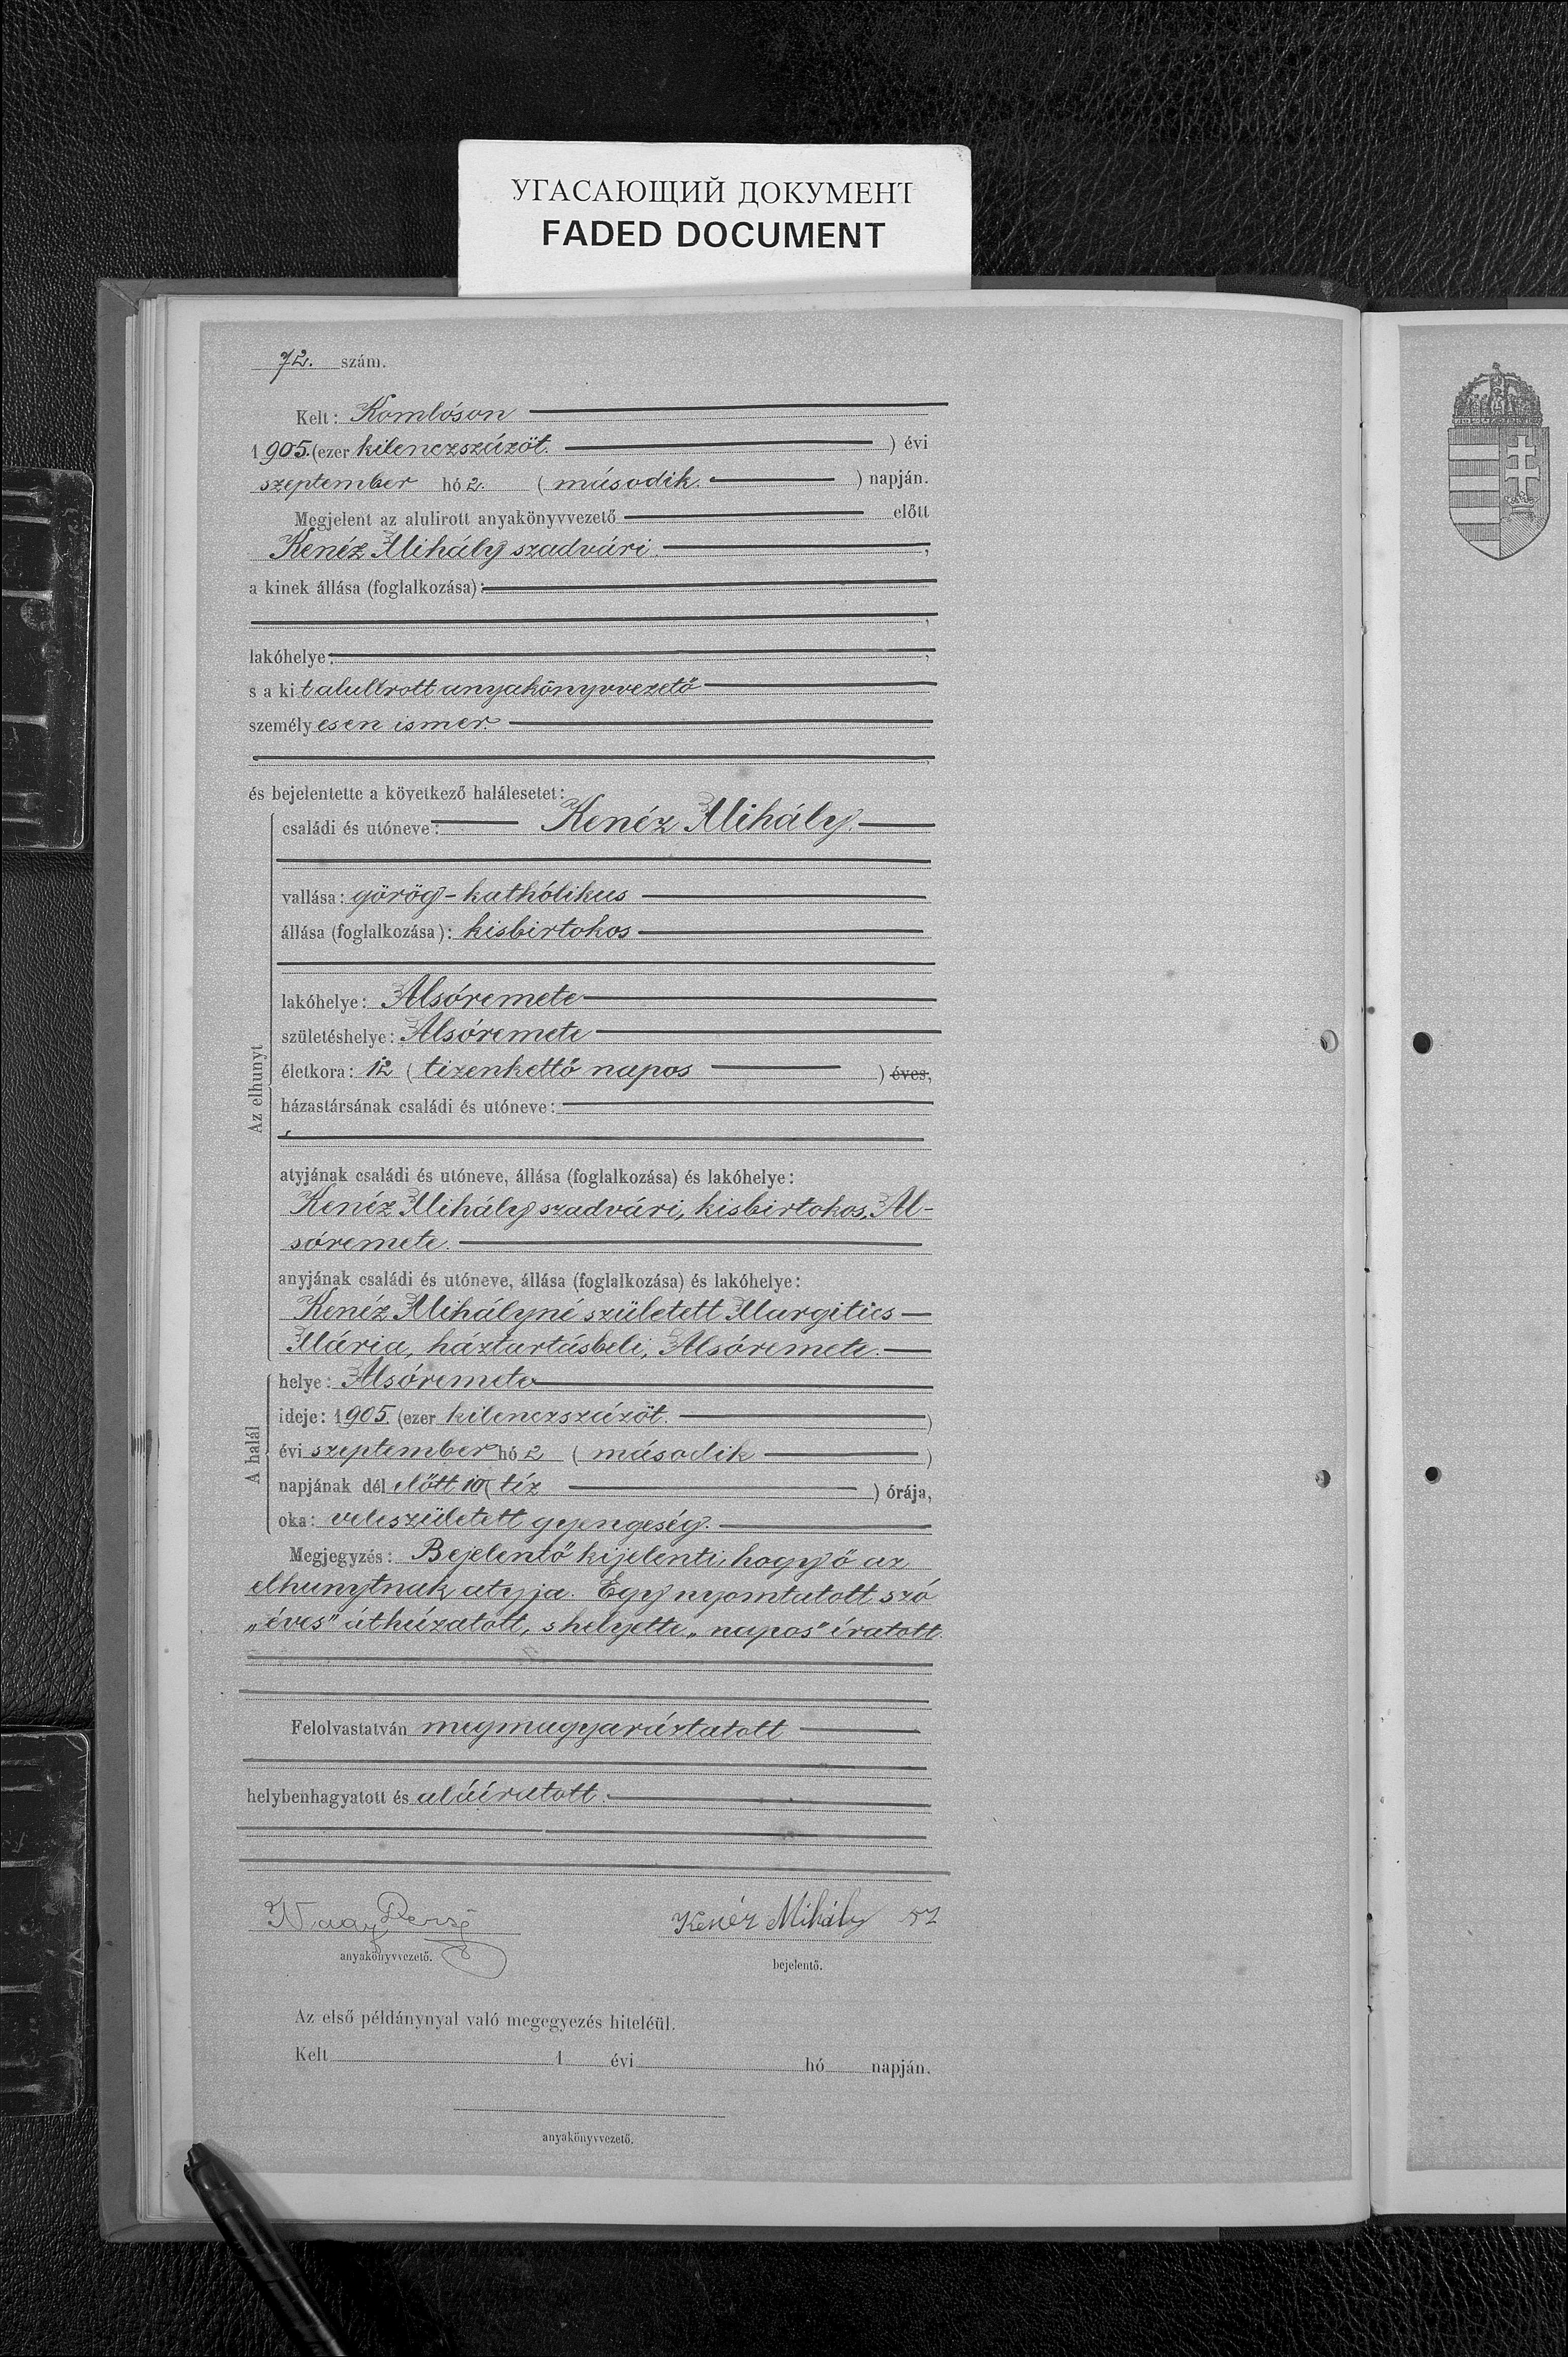 УГАСАЮЩИЙ ДОКУМЕНТ
FADED DOCUMENT
72. szám.
Kelt: Komlóson
1905. (ezer kilenczszázöt. ) évi
szeptember hó 2. ( második. ) napján.
Megjelent az alulirott anyakönyvvezető előtt
Kenéz Mihály szadvári ,
a kinek állása (foglalkozása):
,
lakóhelye: ,
s a kit alulírott anyakönyvvezető
személyesen ismer.
,
és bejelentette a következő halálesetet:
Az elhunyt
családi és utóneve: Kenéz Mihály.
vallása: görög-kathólikus
állása (foglalkozása): kisbirtokos
lakóhelye: Alsóremete
születéshelye: Alsóremete
életkora: 12 ( tizenkettő napos ) éves,
házastársának családi és utóneve:
atyjának családi és utóneve, állása (foglalkozása) és lakóhelye:
Kenéz Mihály szadvári, kisbirtokos, Al-
sóremete.
anyjának családi és utóneve, állása (foglalkozása) és lakóhelye:
Kenéz Mihályné született Margitics
Mária, háztartásbeli, Alsóremete.
A halál
helye: Alsóremete
ideje: 1905. (ezer kilenczszázöt. )
évi szeptember hó 2 ( második )
napjának dél előtt 10 ( tíz ) órája,
oka: veleszületett gyengeség.
Megjegyzés: Bejelentő kijelenti, hogy ő az
elhunytnak atyja. Egy nyomtatott szó
„éves" áthúzatott, s helyette „napos" íratott.
Felolvastatván megmagyaráztatott
helybenhagyatott és aláíratott.
Nagy Dezső Kenéz Mihály
anyakönyvvezető. bejelentő.
Az első példánynyal való megegyezés hiteléül.
Kelt 1 évi hó napján.
anyakönyvvezető.